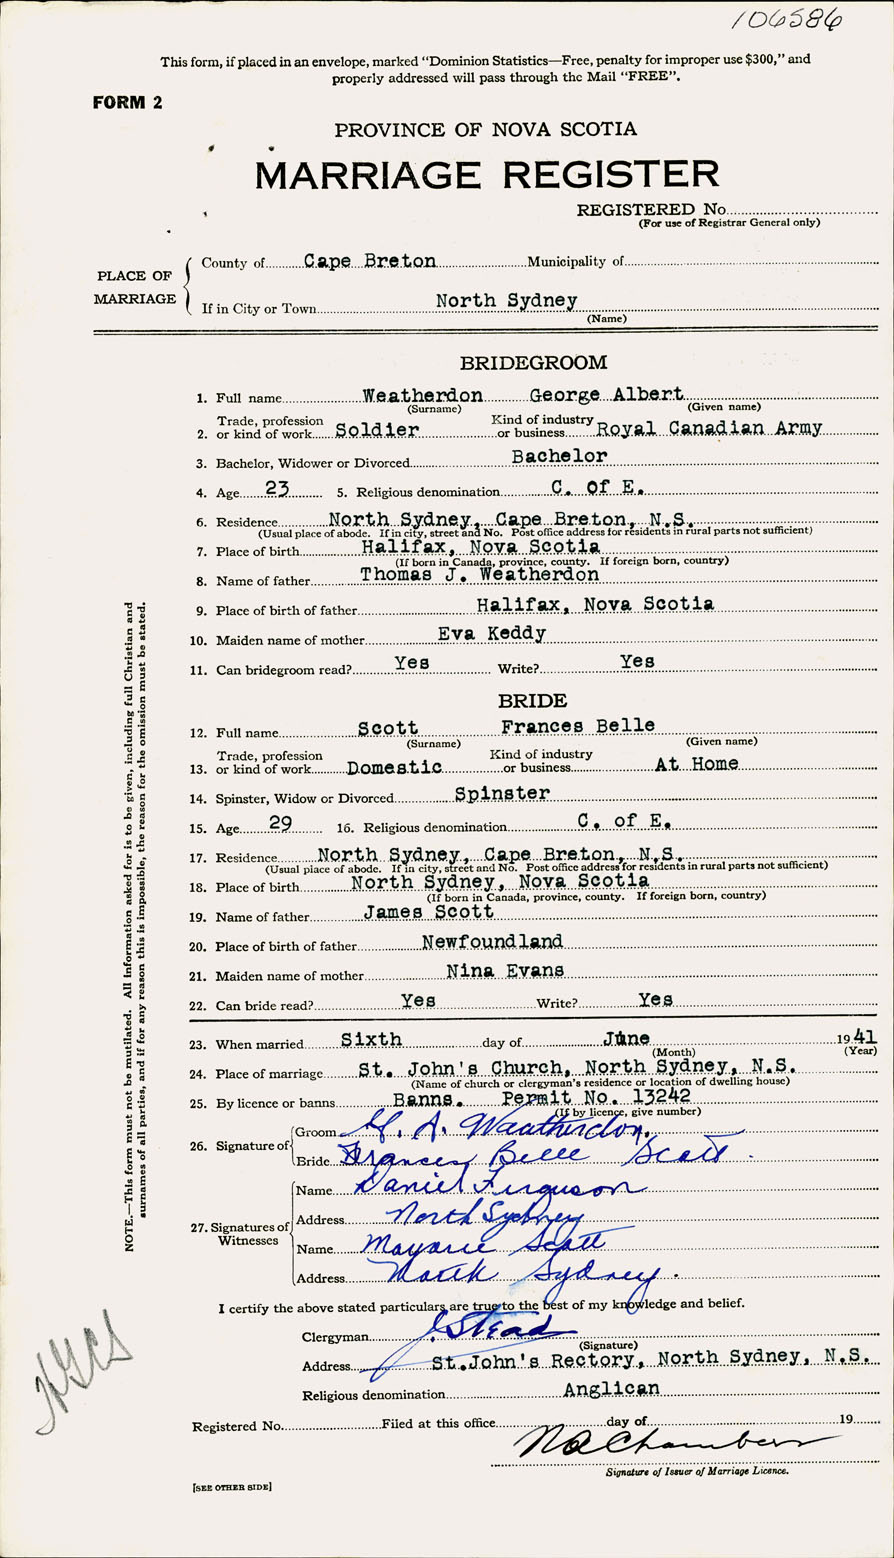 106586
This form, if placed in an envelope, marked "Dominion Statistics—Free, penalty for improper use $300," and
properly addressed will pass through the Mail "FREE".
FORM 2
PROVINCE OF NOVA SCOTIA
MARRIAGE REGISTER
REGISTERED No.
(For use of Registrar General only)
PLACE OF MARRIAGE
County of Cape Breton Municipality of
If in City or Town North Sydney
(Name)
BRIDEGROOM
1. Full name Weatherdon George Albert
(Surname) (Given name)
Trade, profession Kind of industry
2. or kind of work Soldier or business Royal Canadian Army
3. Bachelor, Widower or Divorced Bachelor
4. Age 23 5. Religious denomination C. of E.
6. Residence North Sydney, Cape Breton, N.S.
(Usual place of abode. If in city, street and No. Post office address for residents in rural parts not sufficient)
7. Place of birth Halifax, Nova Scotia
(If born in Canada, province, county. If foreign born, country)
8. Name of father Thomas J. Weatherdon
9. Place of birth of father Halifax, Nova Scotia
10. Maiden name of mother Eva Keddy
11. Can bridegroom read? Yes Write? Yes
BRIDE
12. Full name Scott Frances Belle
(Surname) (Given name)
Trade, profession Kind of industry
13. or kind of work Domestic or business At Home
14. Spinster, Widow or Divorced Spinster
15. Age 29 16. Religious denomination C. of E.
17. Residence North Sydney, Cape Breton, N.S.
(Usual place of abode. If in city, street and No. Post office address for residents in rural parts not sufficient)
18. Place of birth North Sydney, Nova Scotia
(If born in Canada, province, county. If foreign born, country)
19. Name of father James Scott
20. Place of birth of father Newfoundland
21. Maiden name of mother Nina Evans
22. Can bride read? Yes Write? Yes
23. When married Sixth day of June 1941
(Month) (Year)
24. Place of marriage St. John's Church, North Sydney, N.S.
(Name of church or clergyman's residence or location of dwelling house)
25. By licence or banns Banns. Permit No. 13242
(If by licence, give number)
26. Signature of
Groom G. A. Weatherdon.
Bride Frances Belle Scott.
27. Signatures of Witnesses
Name Daniel Ferguson
Address North Sydney
Name Marjorie Scott
Address North Sydney.
I certify the above stated particulars are true to the best of my knowledge and belief.
Clergyman J. Stead
(Signature)
Address St.John's Rectory, North Sydney, N.S.
Religious denomination Anglican
Registered No. Filed at this office day of 19
Chambers
Signature of Issuer of Marriage Licence.
[SEE OTHER SIDE]
NOTE.—This form must not be mutilated. All Information asked for is to be given, including full Christian and
surnames of all parties, and if for any reason this is impossible, the reason for the omission must be stated.